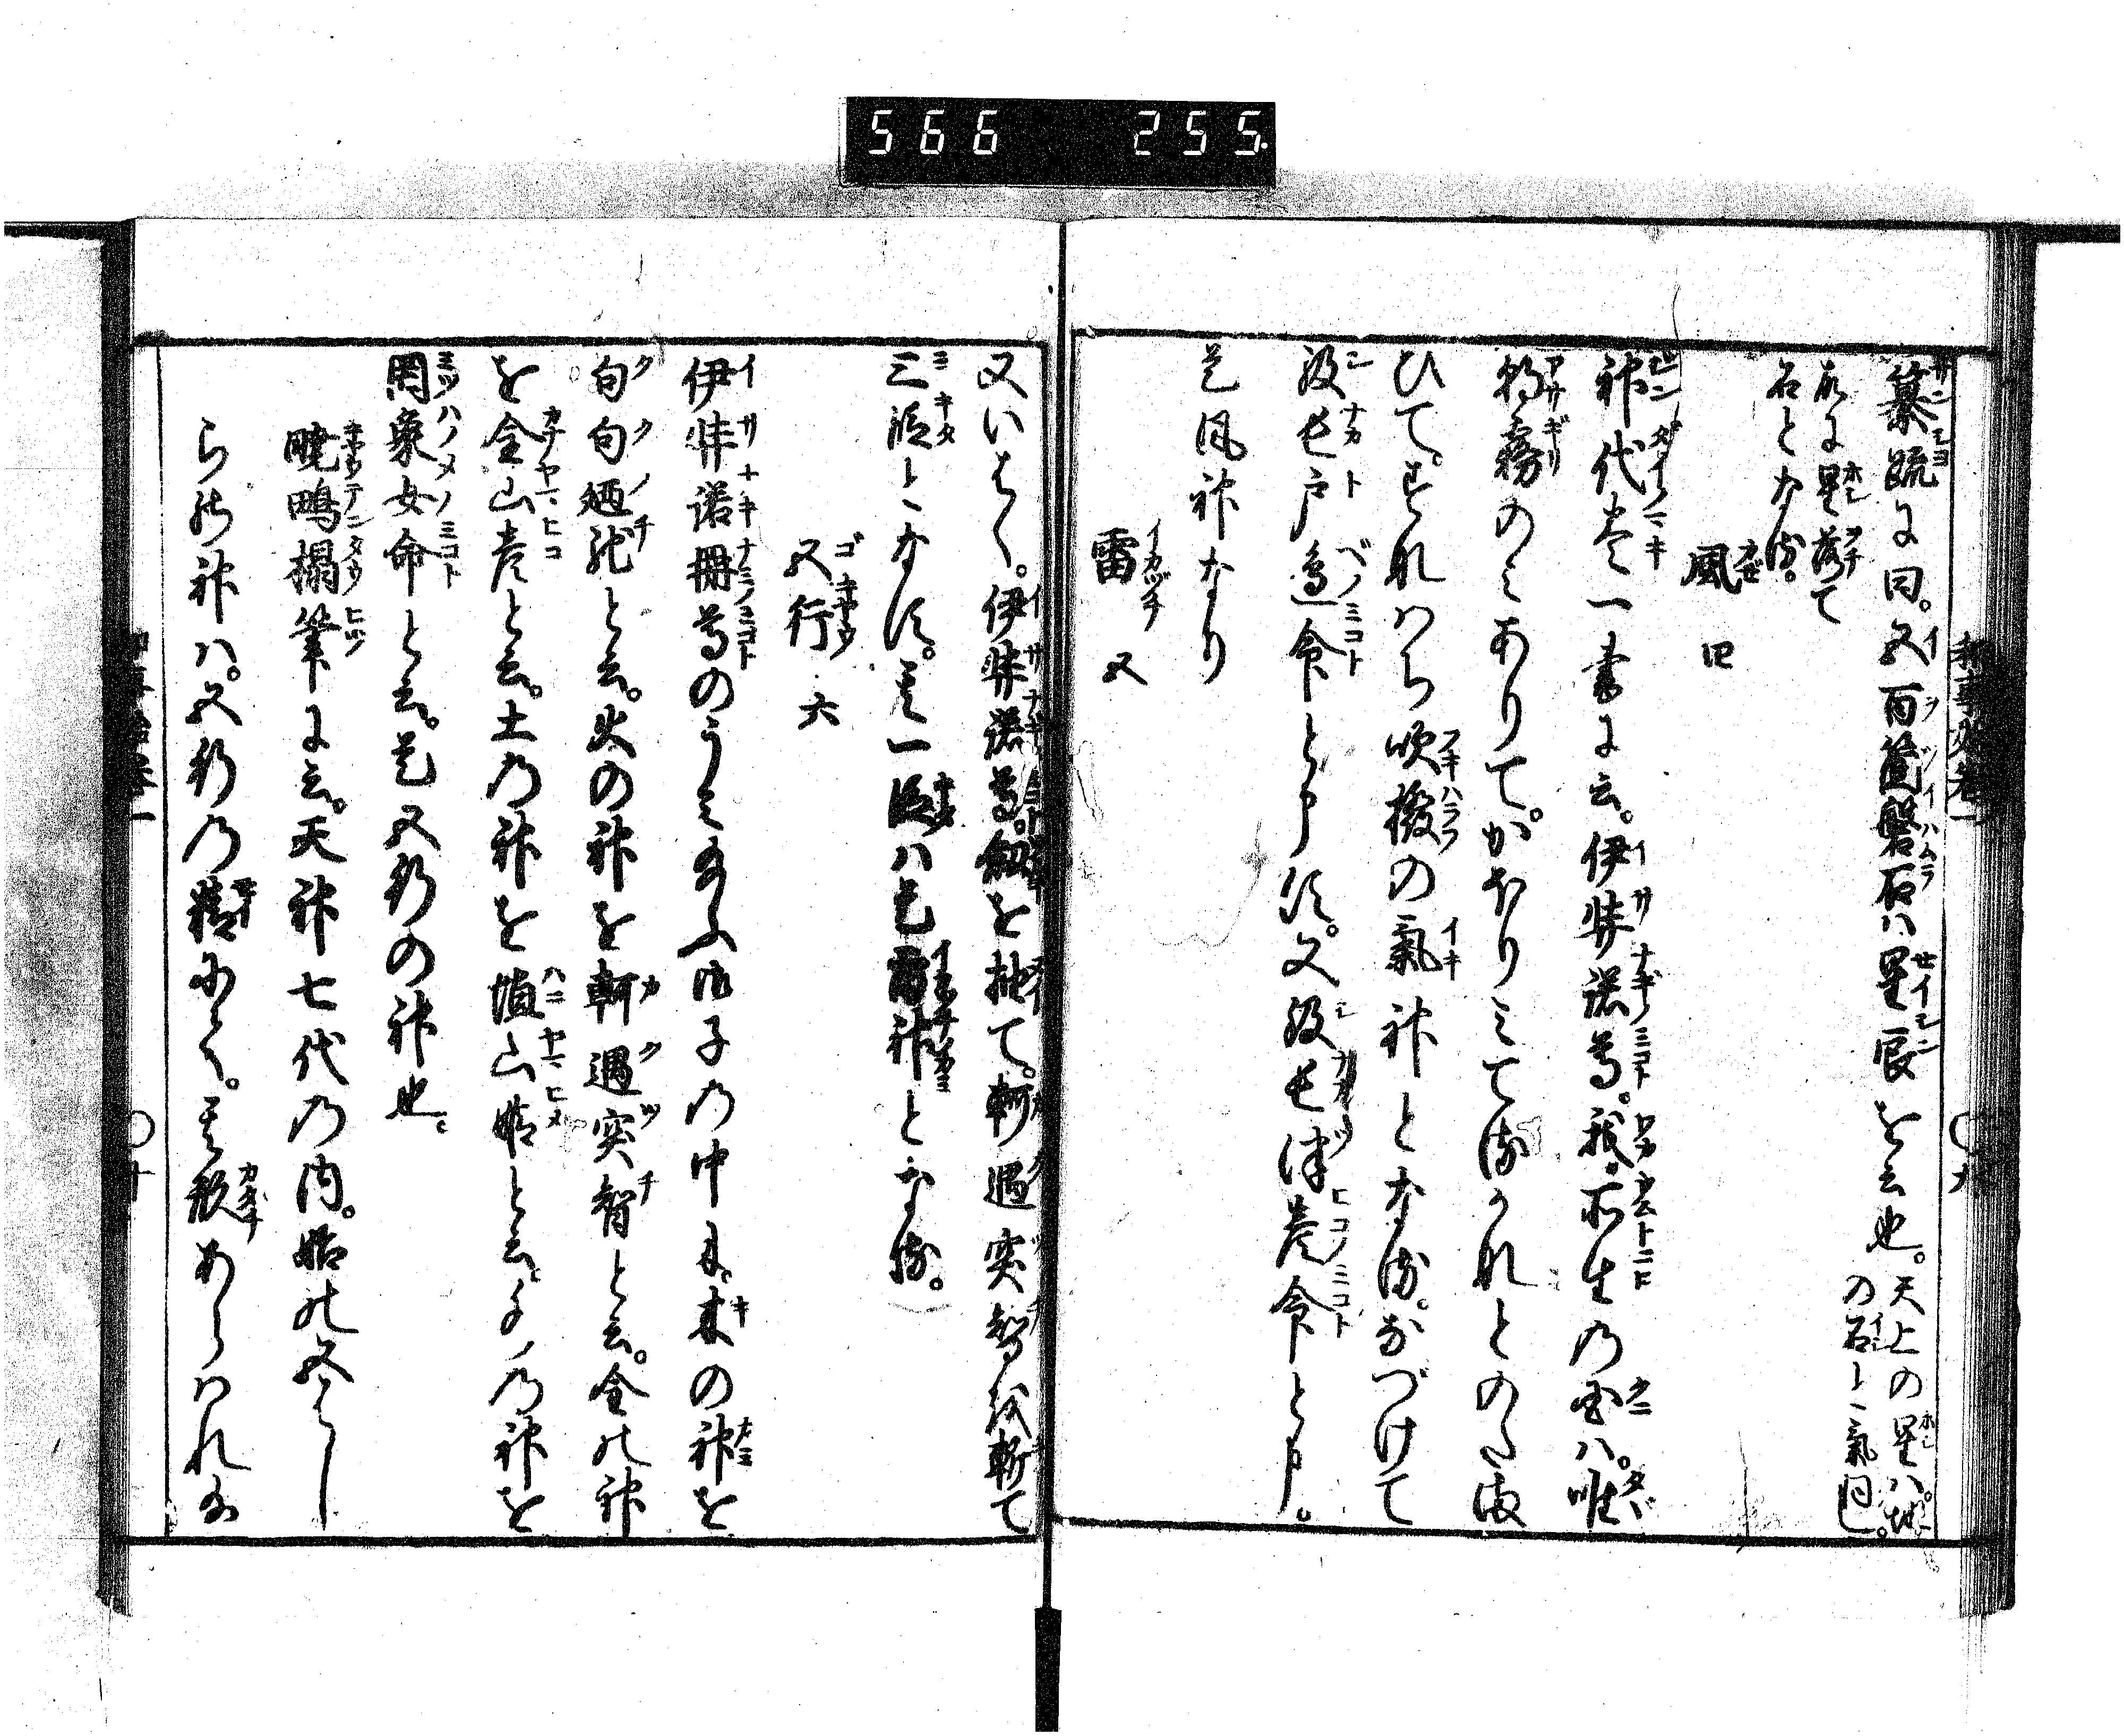 566 255.
纂疏に曰。五百箇磐石ハ星辰を云也。天上の星ハ。地
の石と氣同し。
故に星落て
石となる。
風 四
神代巻一書に云。伊弉諾尊。我所生の国ハ。唯
朝霧のみありて。かほりみてるかれとのたま
ひて。すなハち吹撥の氣神となる。なづけて
級長戸邊命と申す。又級長津彦命と申。
是風神なり
雷 五
又いはく。伊弉諾尊。劔を抜て。軻遇突智を斬て
三段となす。其一段ハ是雷神となる。
五行 六
伊弉諾冊尊のうミ給ふ御子の中に。木の神を
句句廼馳と云。火の神を軻遇突智と云。金の神
を金山彦と云。土の神を埴山姫と云。水の神を
罔象女命と云。是五行の神也。
暁鴫榻筆に云。天神七代の内。始の五はし
らの神ハ。五行の精にて。其形あらハれ給
○十